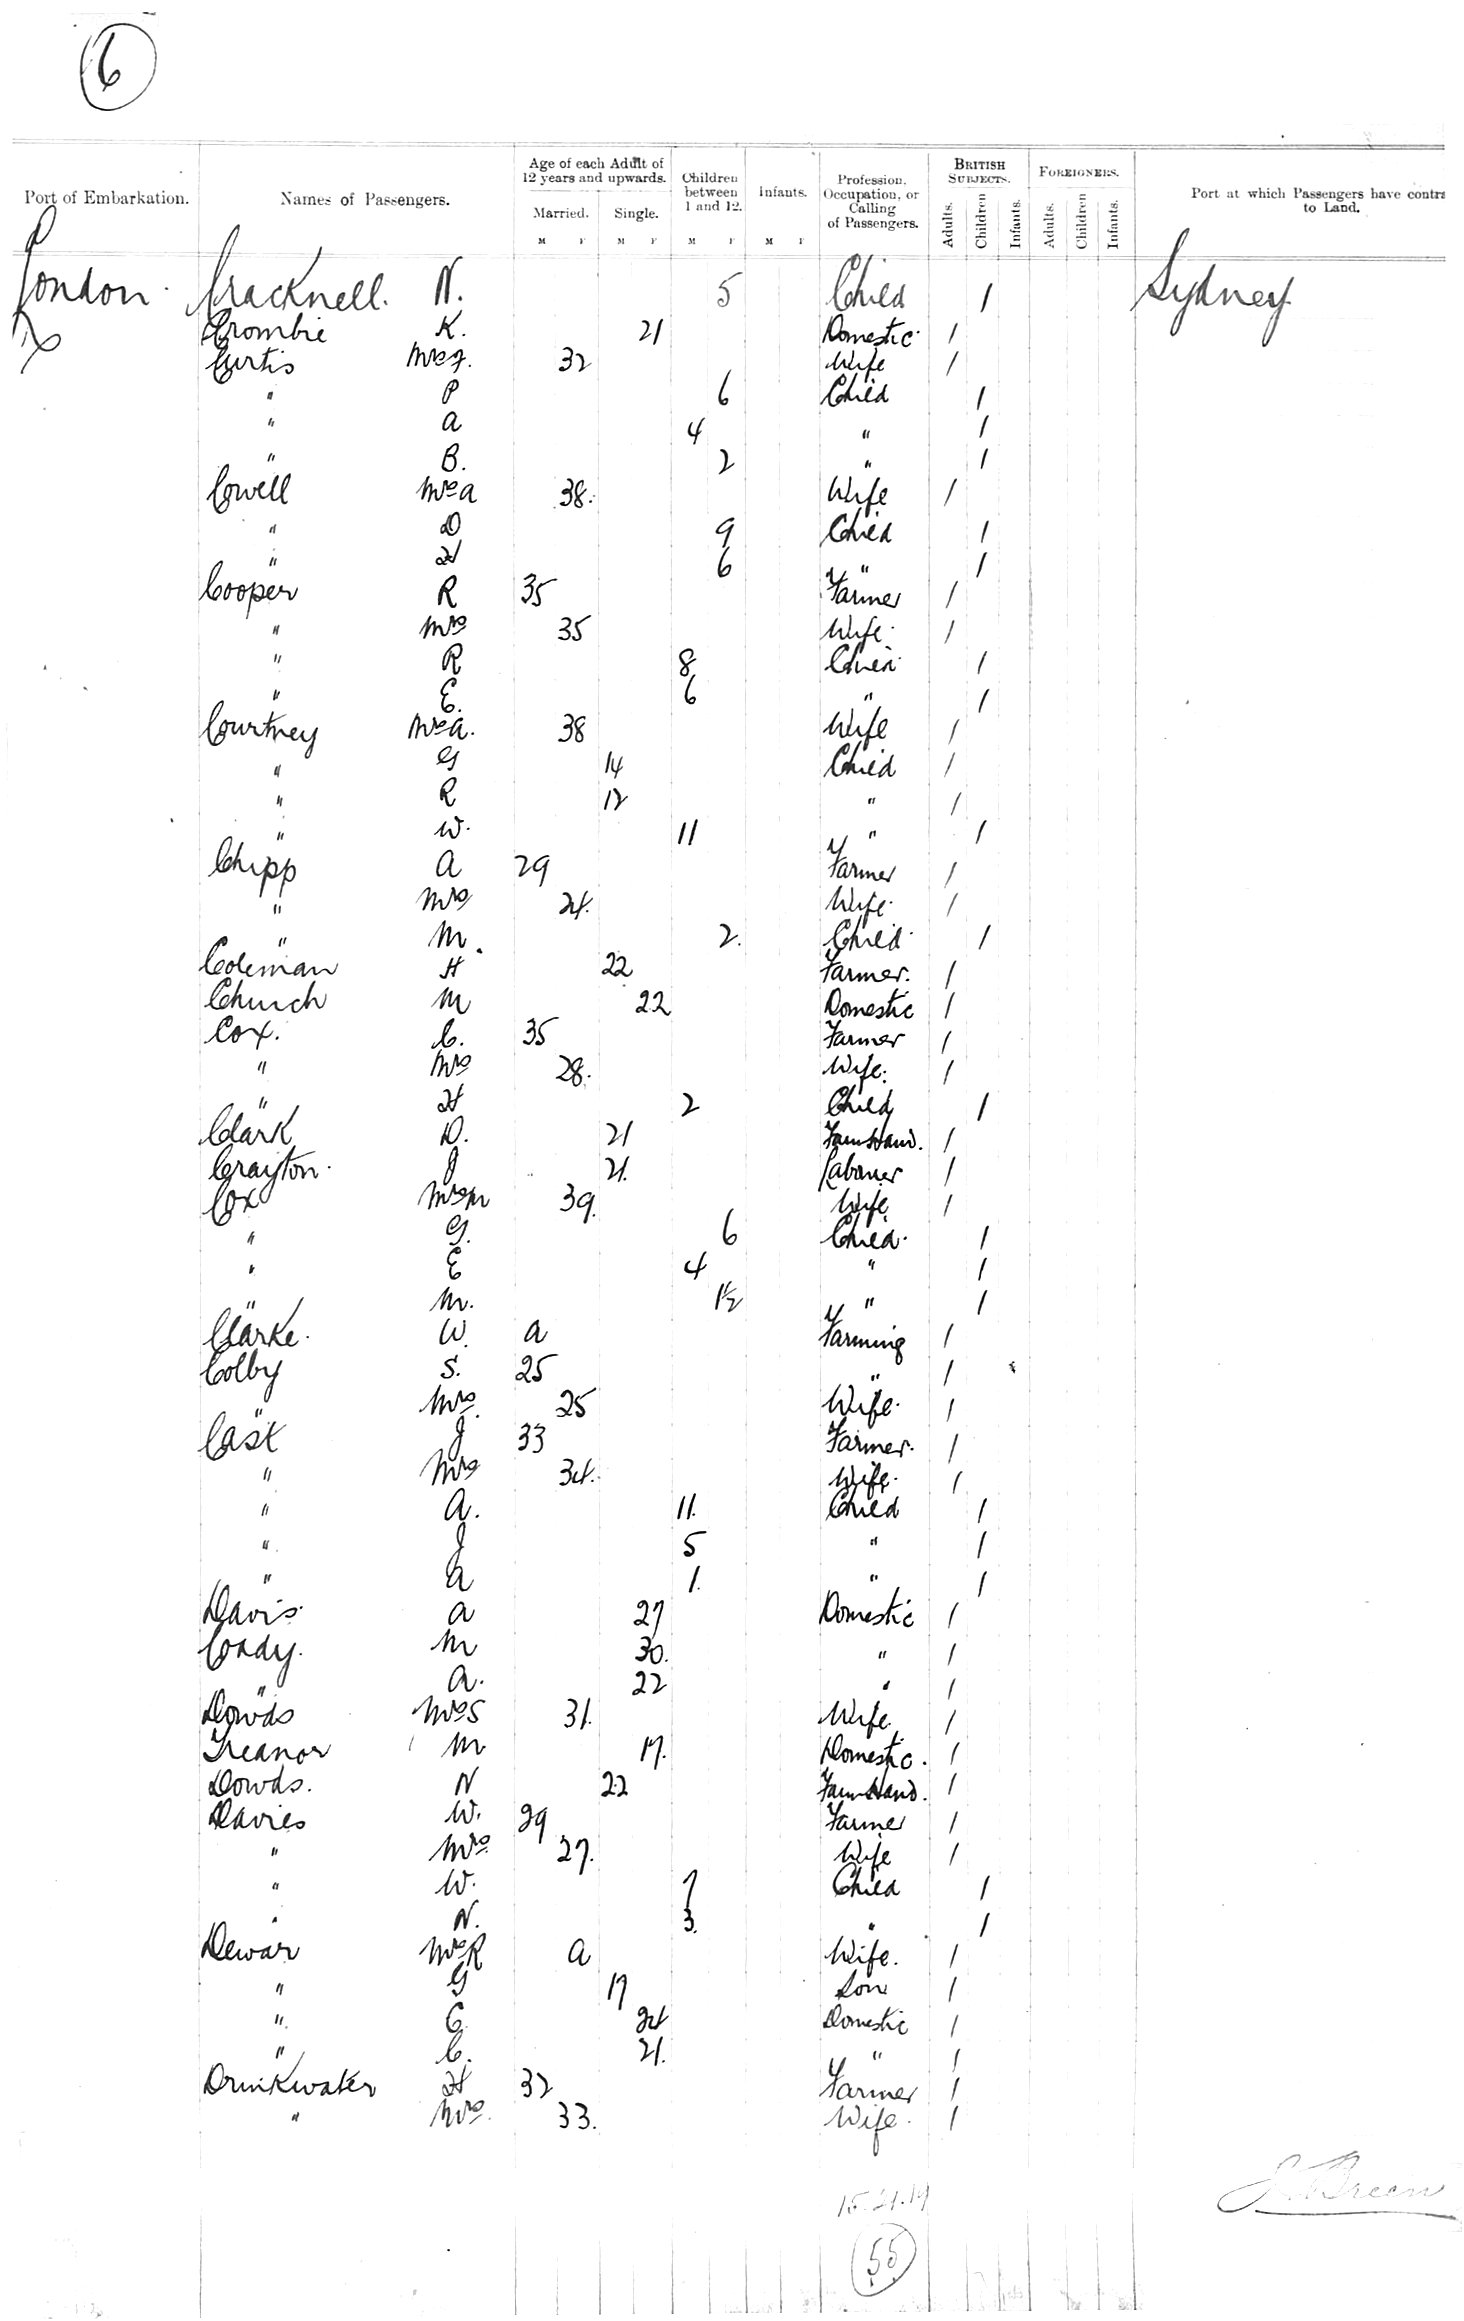 6
Port of Embarkation. Names of Passengers. Age of each Adult of 12 years and upwards. Married. M F Single. M F Children between 1 and 12. M F Infants. M F Profession, Occupation, or Calling of Passengers. British Subjects. Adults. Children Infants. Foreigners. Adults. Children Infants. Port at which Passengers have contra to Land.
London Cracknell. N. 5 Child 1 Sydney
Crombie K. 21 Domestic 1
Curtis Mrs 32 Wife 1
" P 6 Child 1
" A 4 " 1
" B. 2 " 1
Cowell Mrs A 38. Wife 1
" D 9 Child 1
" H 6 " 1
Cooper R 35 Farmer 1
" Mrs 35 Wife 1
" R 8 Child 1
" E. 6 " 1
Courtney Mrs A. 38 Wife 1
" G 14 Child 1
" R 12 " 1
" W. 11 " 1
Chipp A 29 Farmer 1
" Mrs 24. Wife 1
" M. 2. Child 1
Coleman H 22 Farmer. 1
Church M 22 Domestic 1
Cox. C. 35 Farmer 1
" Mrs 28. Wife. 1
" H 2 Child 1
Clark D. 21 Farm Hand. 1
Crayton. J 21. Labourer 1
Cox Mrs M 39. Wife 1
" G. 6 Child. 1
" E 4 " 1
" M. 1½ " 1
Clarke. W. a Farming 1
Colby S. 25 " 1
" Mrs. 25 Wife. 1
Cask J 33 Farmer. 1
" Mrs 34. Wife. 1
" A. 11. Child 1
" J 5 " 1
" A 1. " 1
Davis A 27 Domestic 1
Condy. M 30. " 1
" A. 22 " 1
Dowds Mrs S 31. Wife. 1
Treanor M 17. Domestic. 1
Dowds. N 22 Farm Hand. 1
Davies W. 29 Farmer 1
" Mrs 27. Wife 1
" W. 7 Child 1
" N. 3. " 1
Dewar Mrs R a Wife. 1
" G 17 Son 1
" E 24 Domestic 1
" C. 21. " 1
Drinkwater H 32 Farmer 1
" Mrs. 33. Wife. 1
15.21.19
Breen
55